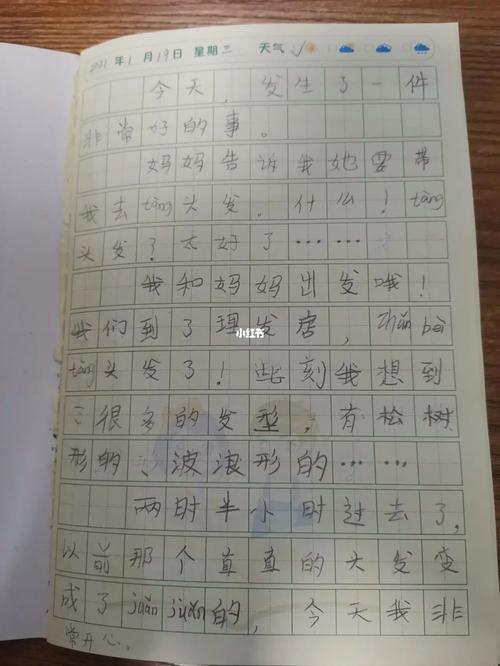 2021年1月19日 星期三 天气
今天，发生了一件
非常好的事。
妈妈告诉我她要带
我去tàng头发。什么！tàng
头发？太好了……
我和妈妈出发哦！
我们到了理发店，zhǔn bèi
tàng头发了！此刻我想到
了很多的发型，有松树
形的、波浪形的……
小红书
两时半小时过去了，
以前那个直直的头发变
成了juǎn juǎn的，今天我非
常开心。